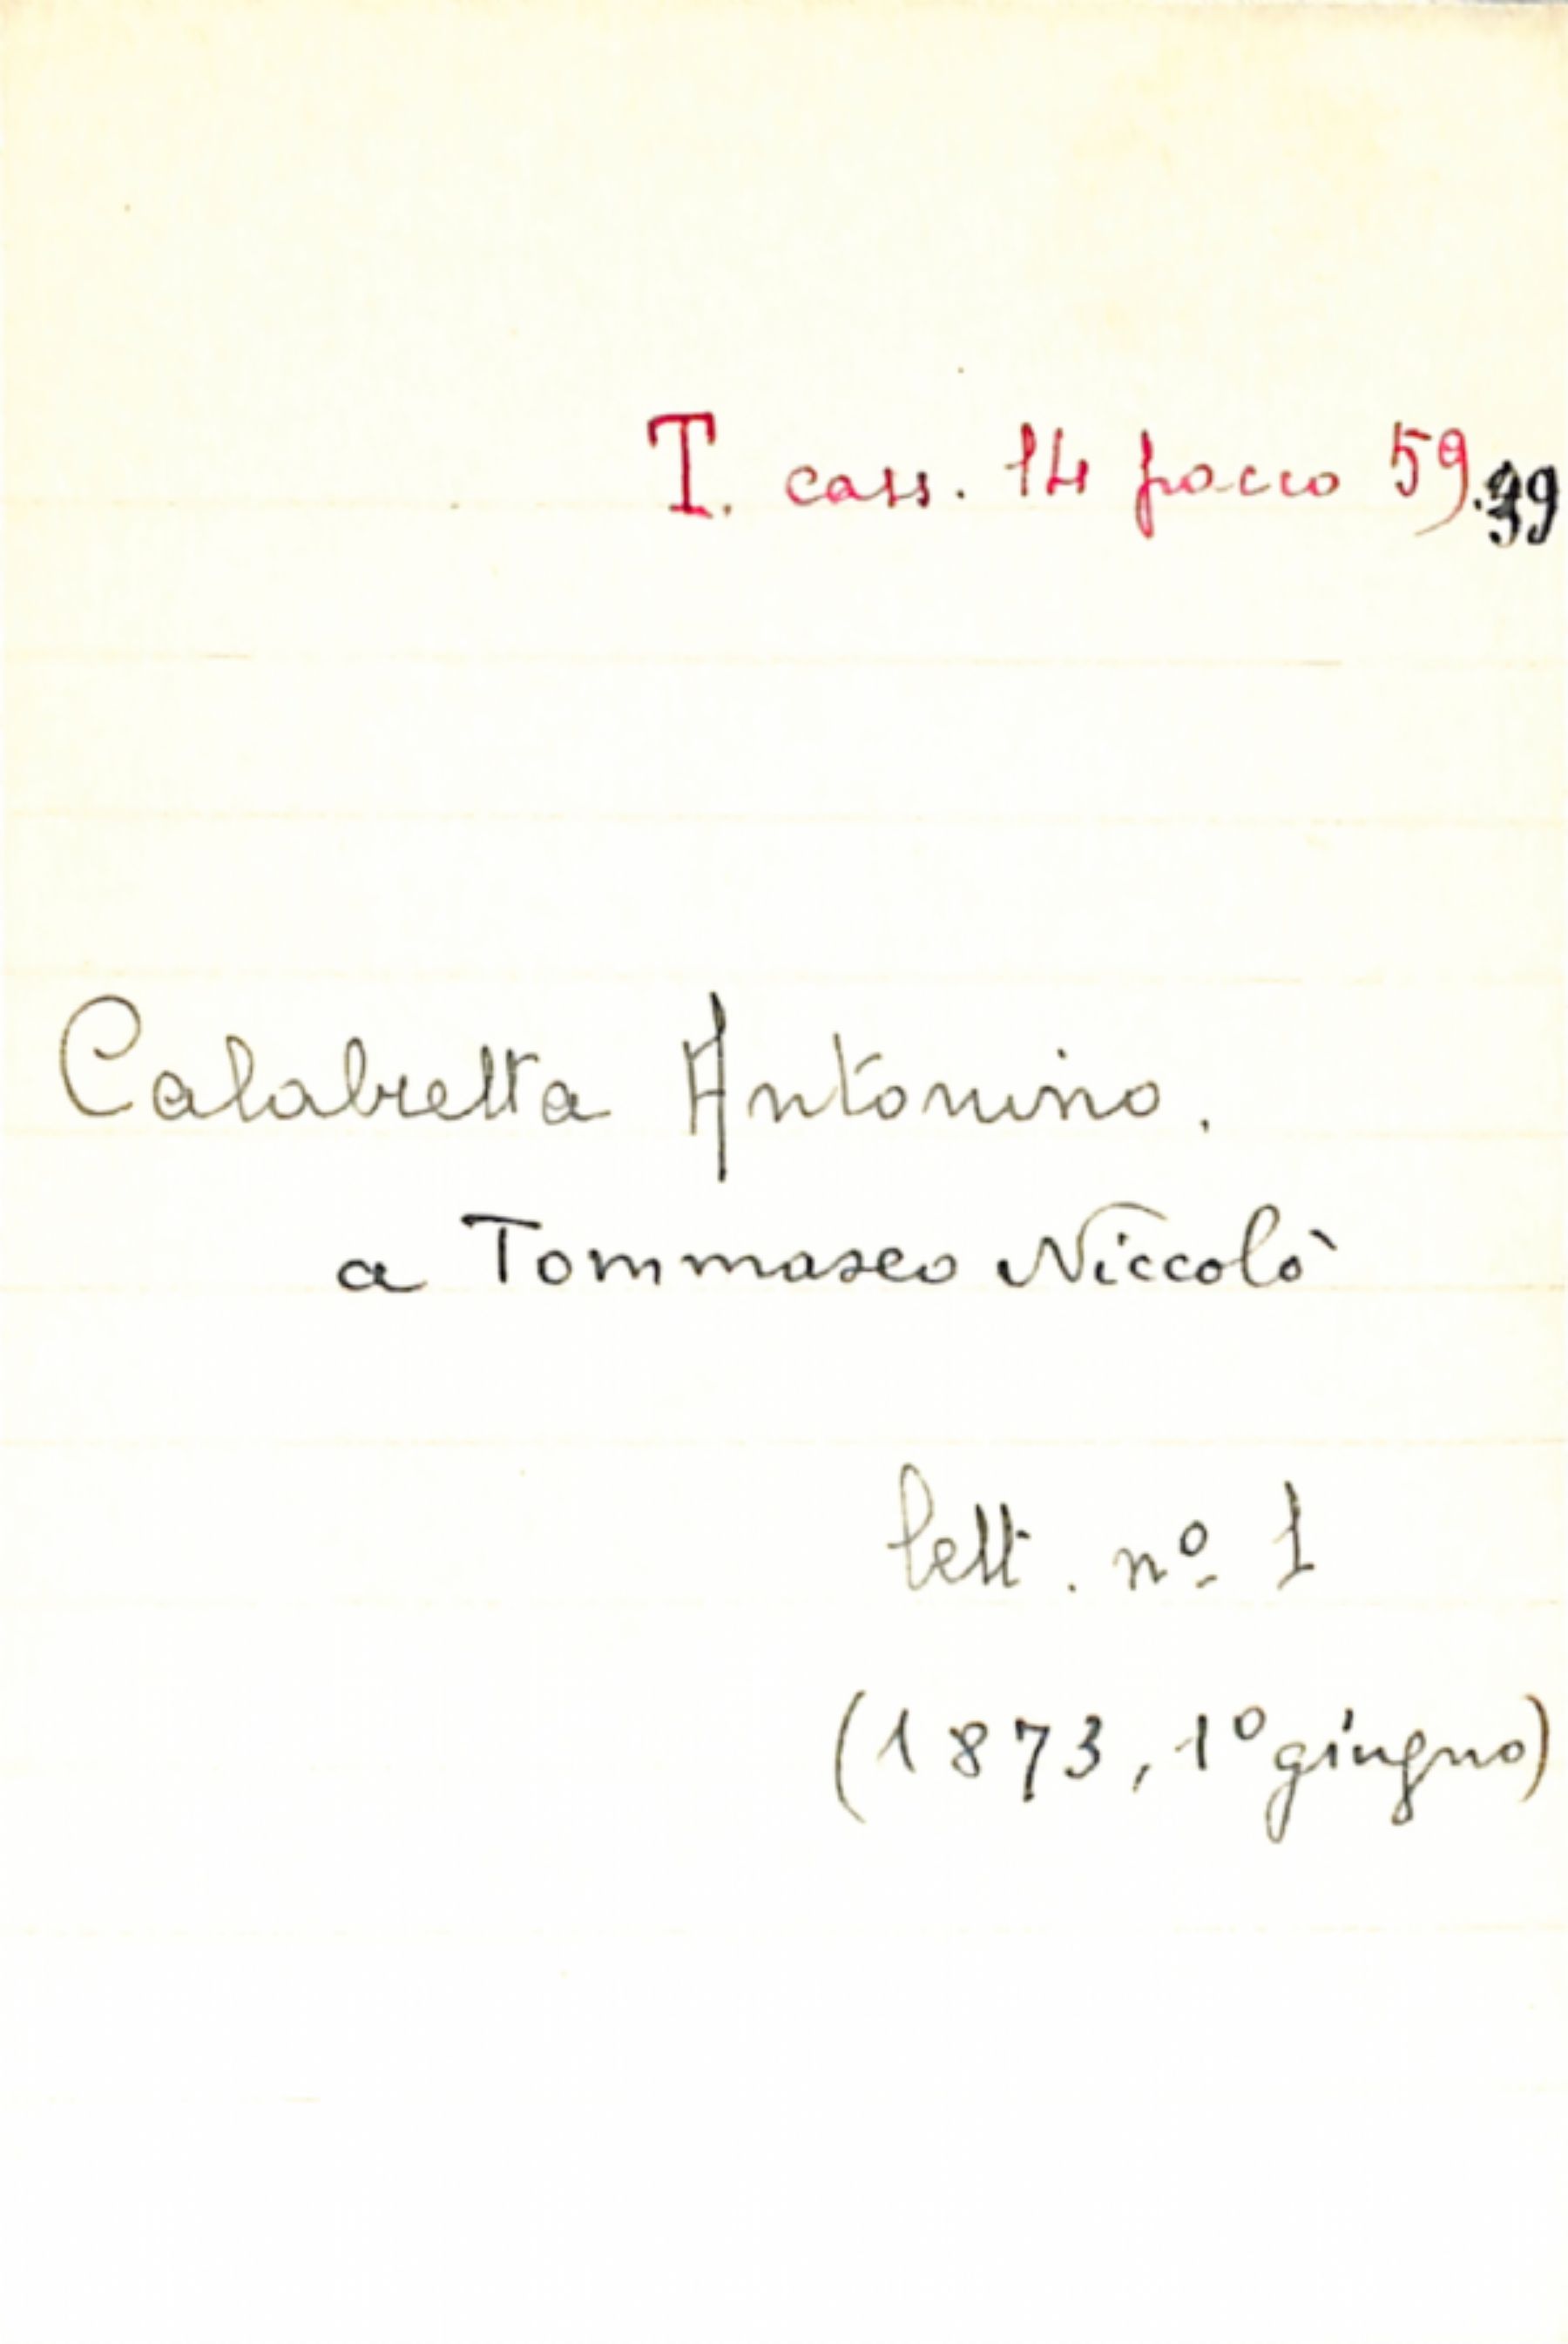 T. cass. 14 pacco 59.39
Calabretta Antonino.
a Tommaseo Niccolò
lett. nº 1
(1873, 1º giugno)